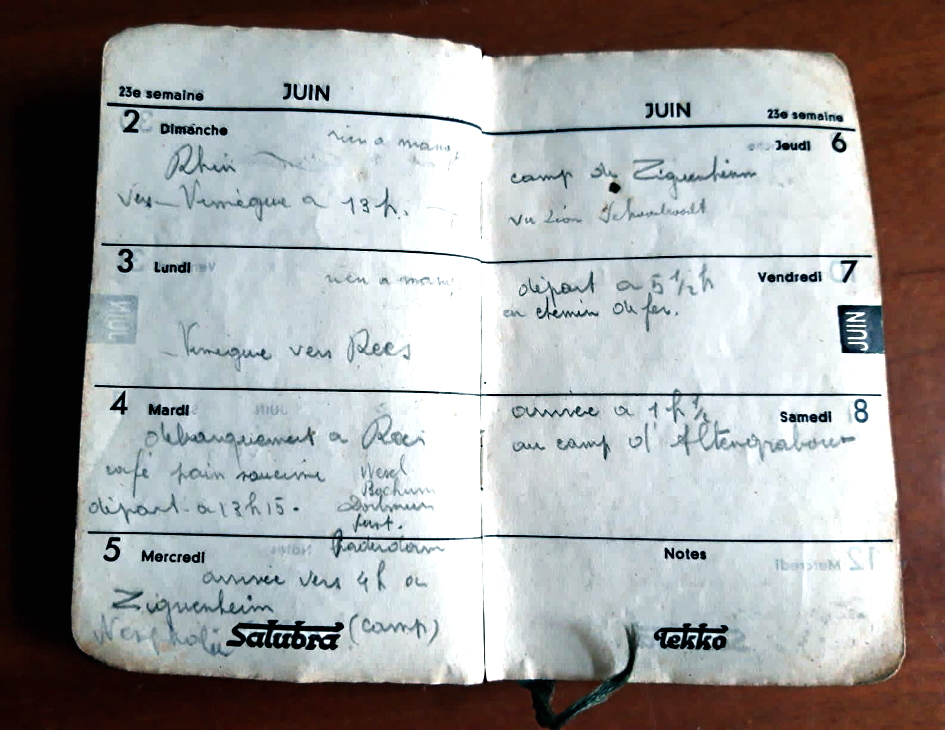 23e semaine JUIN
2 Dimanche rien a mang
Rhin
vers Nimègue a 13 h.
3 Lundi rien a mang
Nimegue vers Rees
4 Mardi
debarquement a Rees
café pain saucisse Wesel
Bochum
départ a 13 h 15. Dortmun
Paderdorn
5 Mercredi
arrivée vers 4 h a
Ziguenheim
(camp)
Salubra
JUIN 23e semaine
Jeudi 6
camp de Ziguenheim
vu Léon
Vendredi 7
départ a 5 1/2 h
en chemin de fer.
JUIN
arrivée a 1 h 1/2
Samedi 8
au camp d'Altengrabow
Notes
Tekko